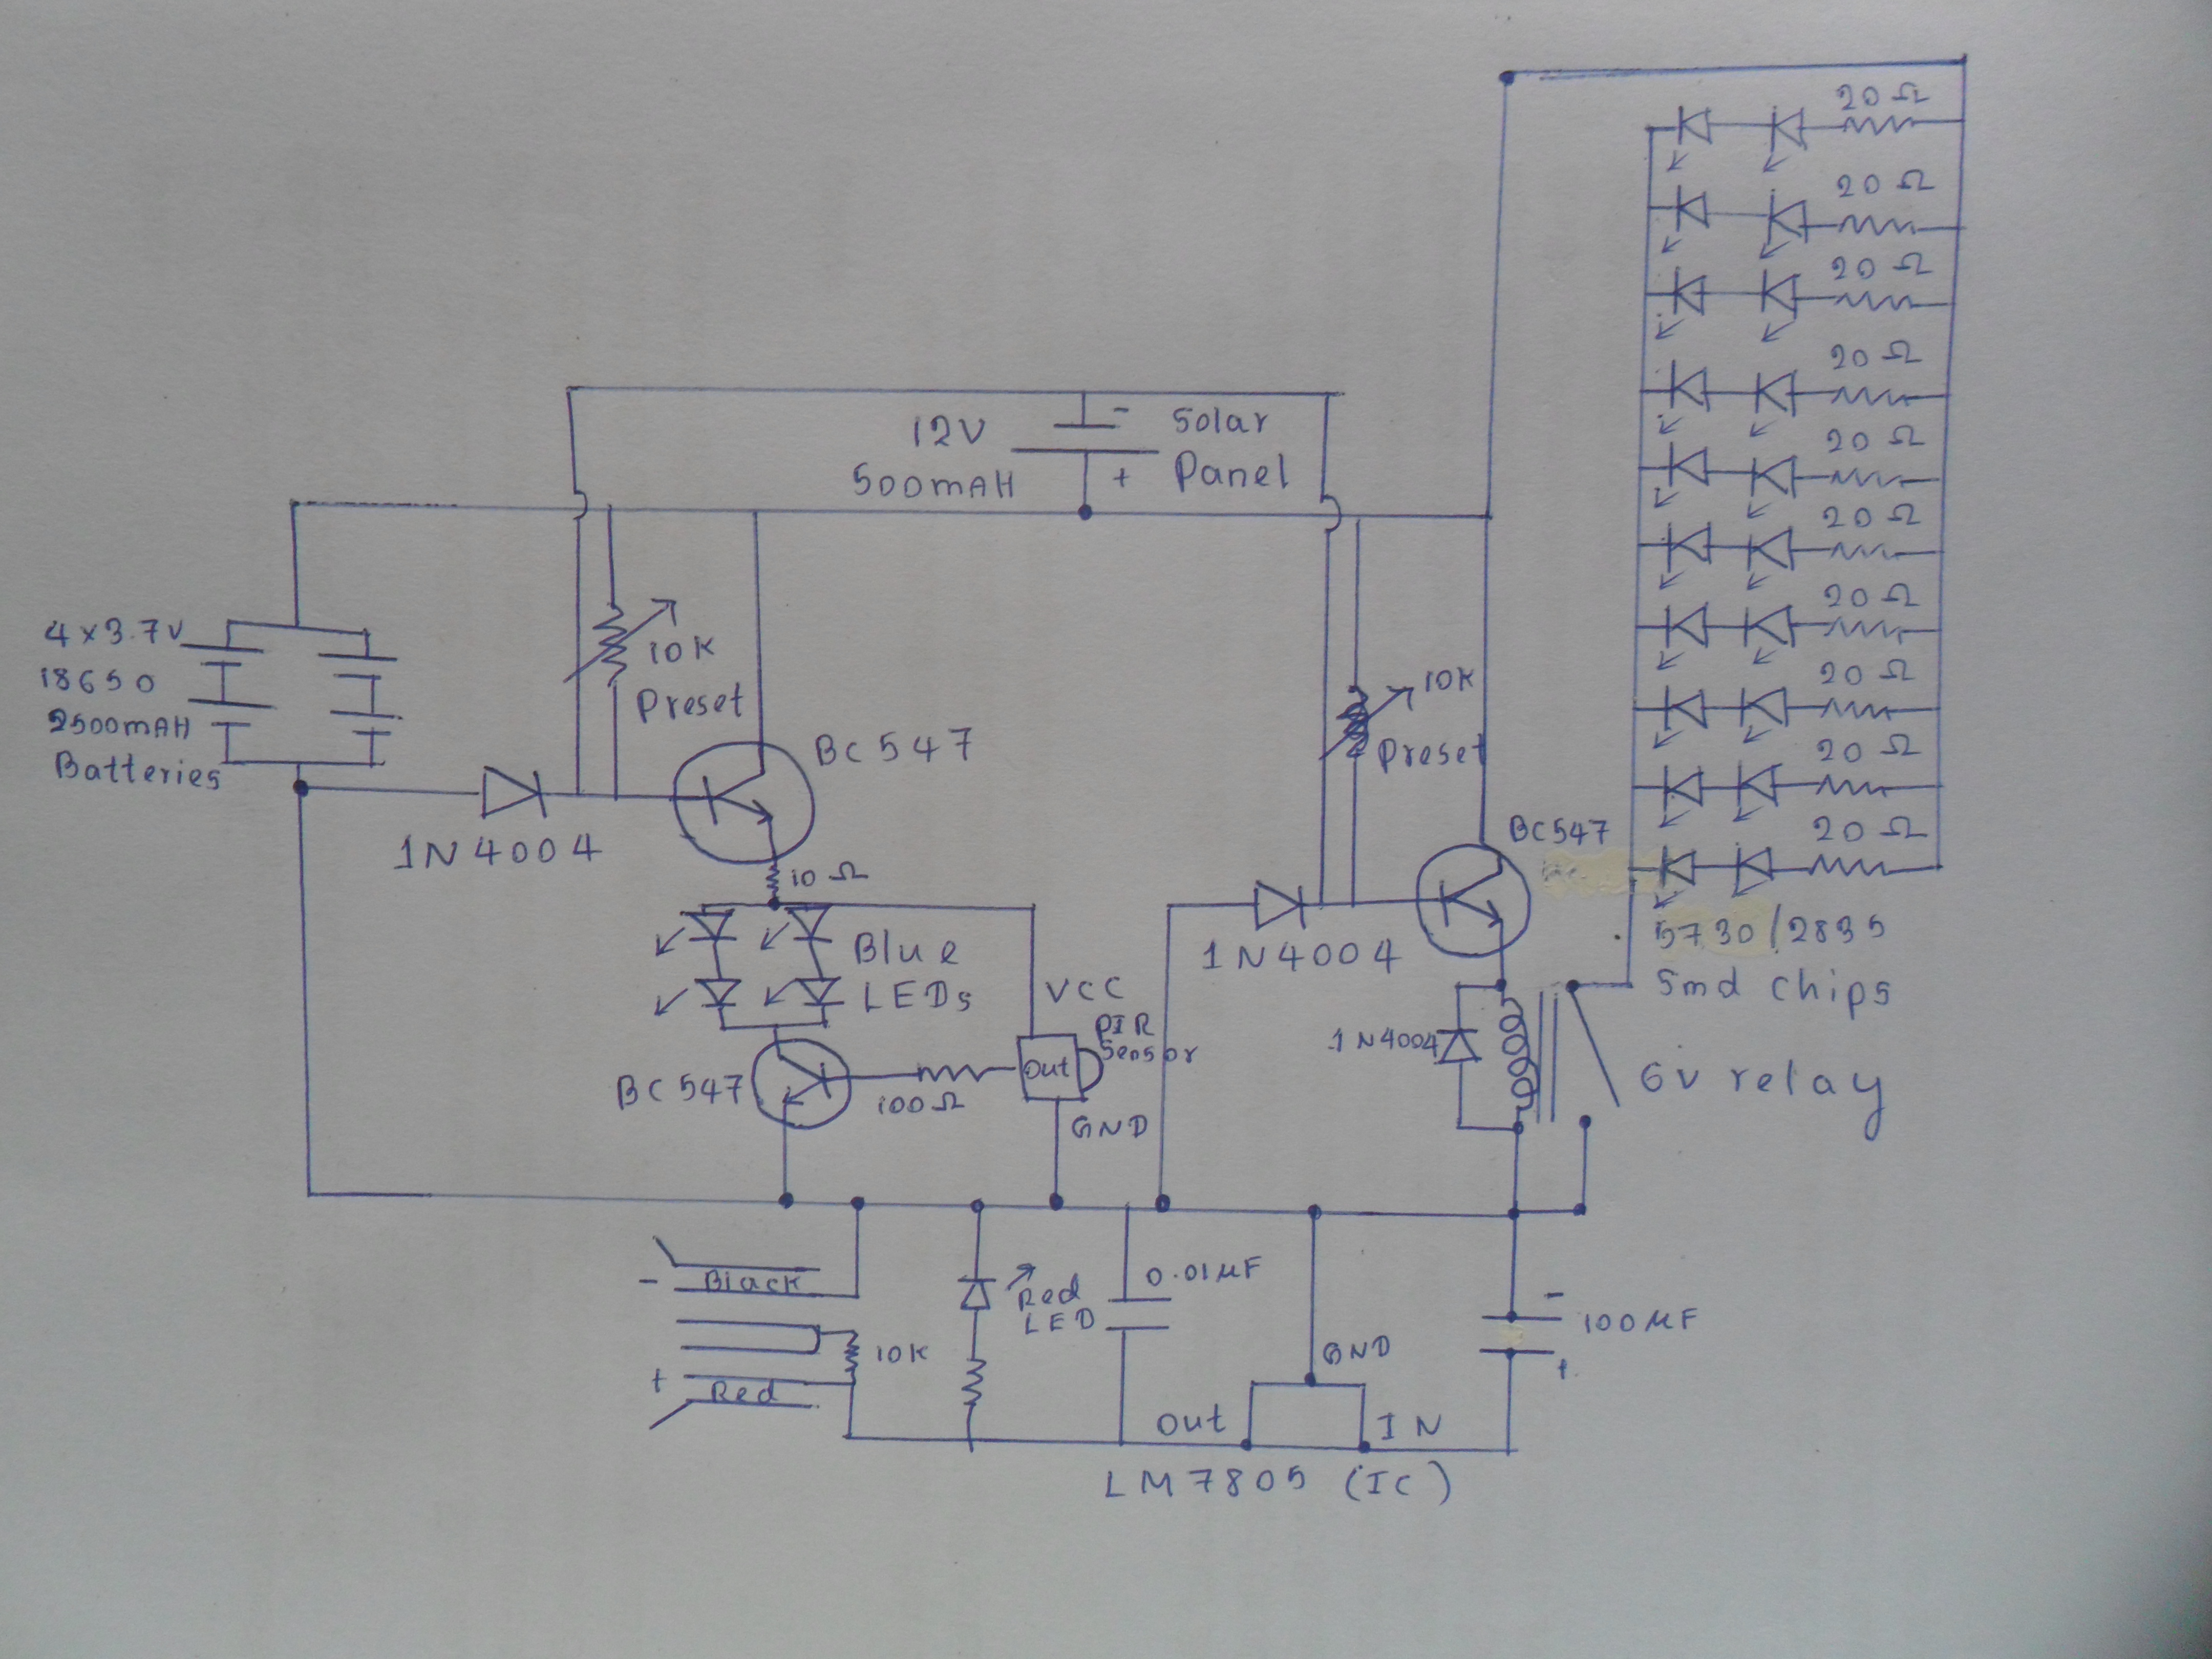 20 Ω
20 Ω
20 Ω
20 Ω
20 Ω
20 Ω
20 Ω
20 Ω
20 Ω
20 Ω
5730/2835
Smd chips
12V
500mAH
-
+
Solar
Panel
4x3.7V
18650
2500mAH
Batteries
1N4004
10K
Preset
BC547
10 Ω
Blue
LEDs
BC547
100Ω
VCC
PIR
Sensor
Out
GND
10K
Preset
BC547
1N4004
1N4004
6V relay
-
Black
+
Red
10K
Red
LED
0.01µF
GND
Out
IN
LM7805 (IC)
-
100µF
+